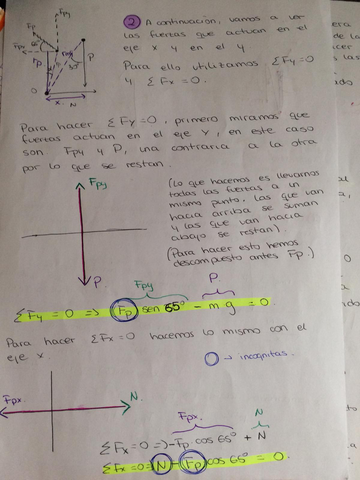 Fpy
Fpx
Fp
65°
P
O
x
N
2 A continuación, vamos a ver
las fuertas que actúan en el
eje X y en el y
Para ello utilizamos ΣFy=0
y ΣFx=0.
Para hacer ΣFy=0, primero miramos que
fuertas actúan en el eje Y, en este caso
son Fpy y P, una contraria a la otra
por lo que se restan.
Fpy
(lo que hacemos es llevarnos
todas las fuertas a un
mismo punto, las que van
hacia arriba se suman
y las que van hacia
abajo se restan).
(Para hacer esto hemos
descompuesto antes Fp.)
P
Fpy P.
ΣFy = 0 => Fp sen 65° - m g = 0
Para hacer ΣFx=0 hacemos lo mismo con el
eje x.
O → incognitas.
Fpx. N
Fpx. N
ΣFx=0=>-Fp cos 65° + N
ΣFx=0=>N-Fp cos 65° = 0.